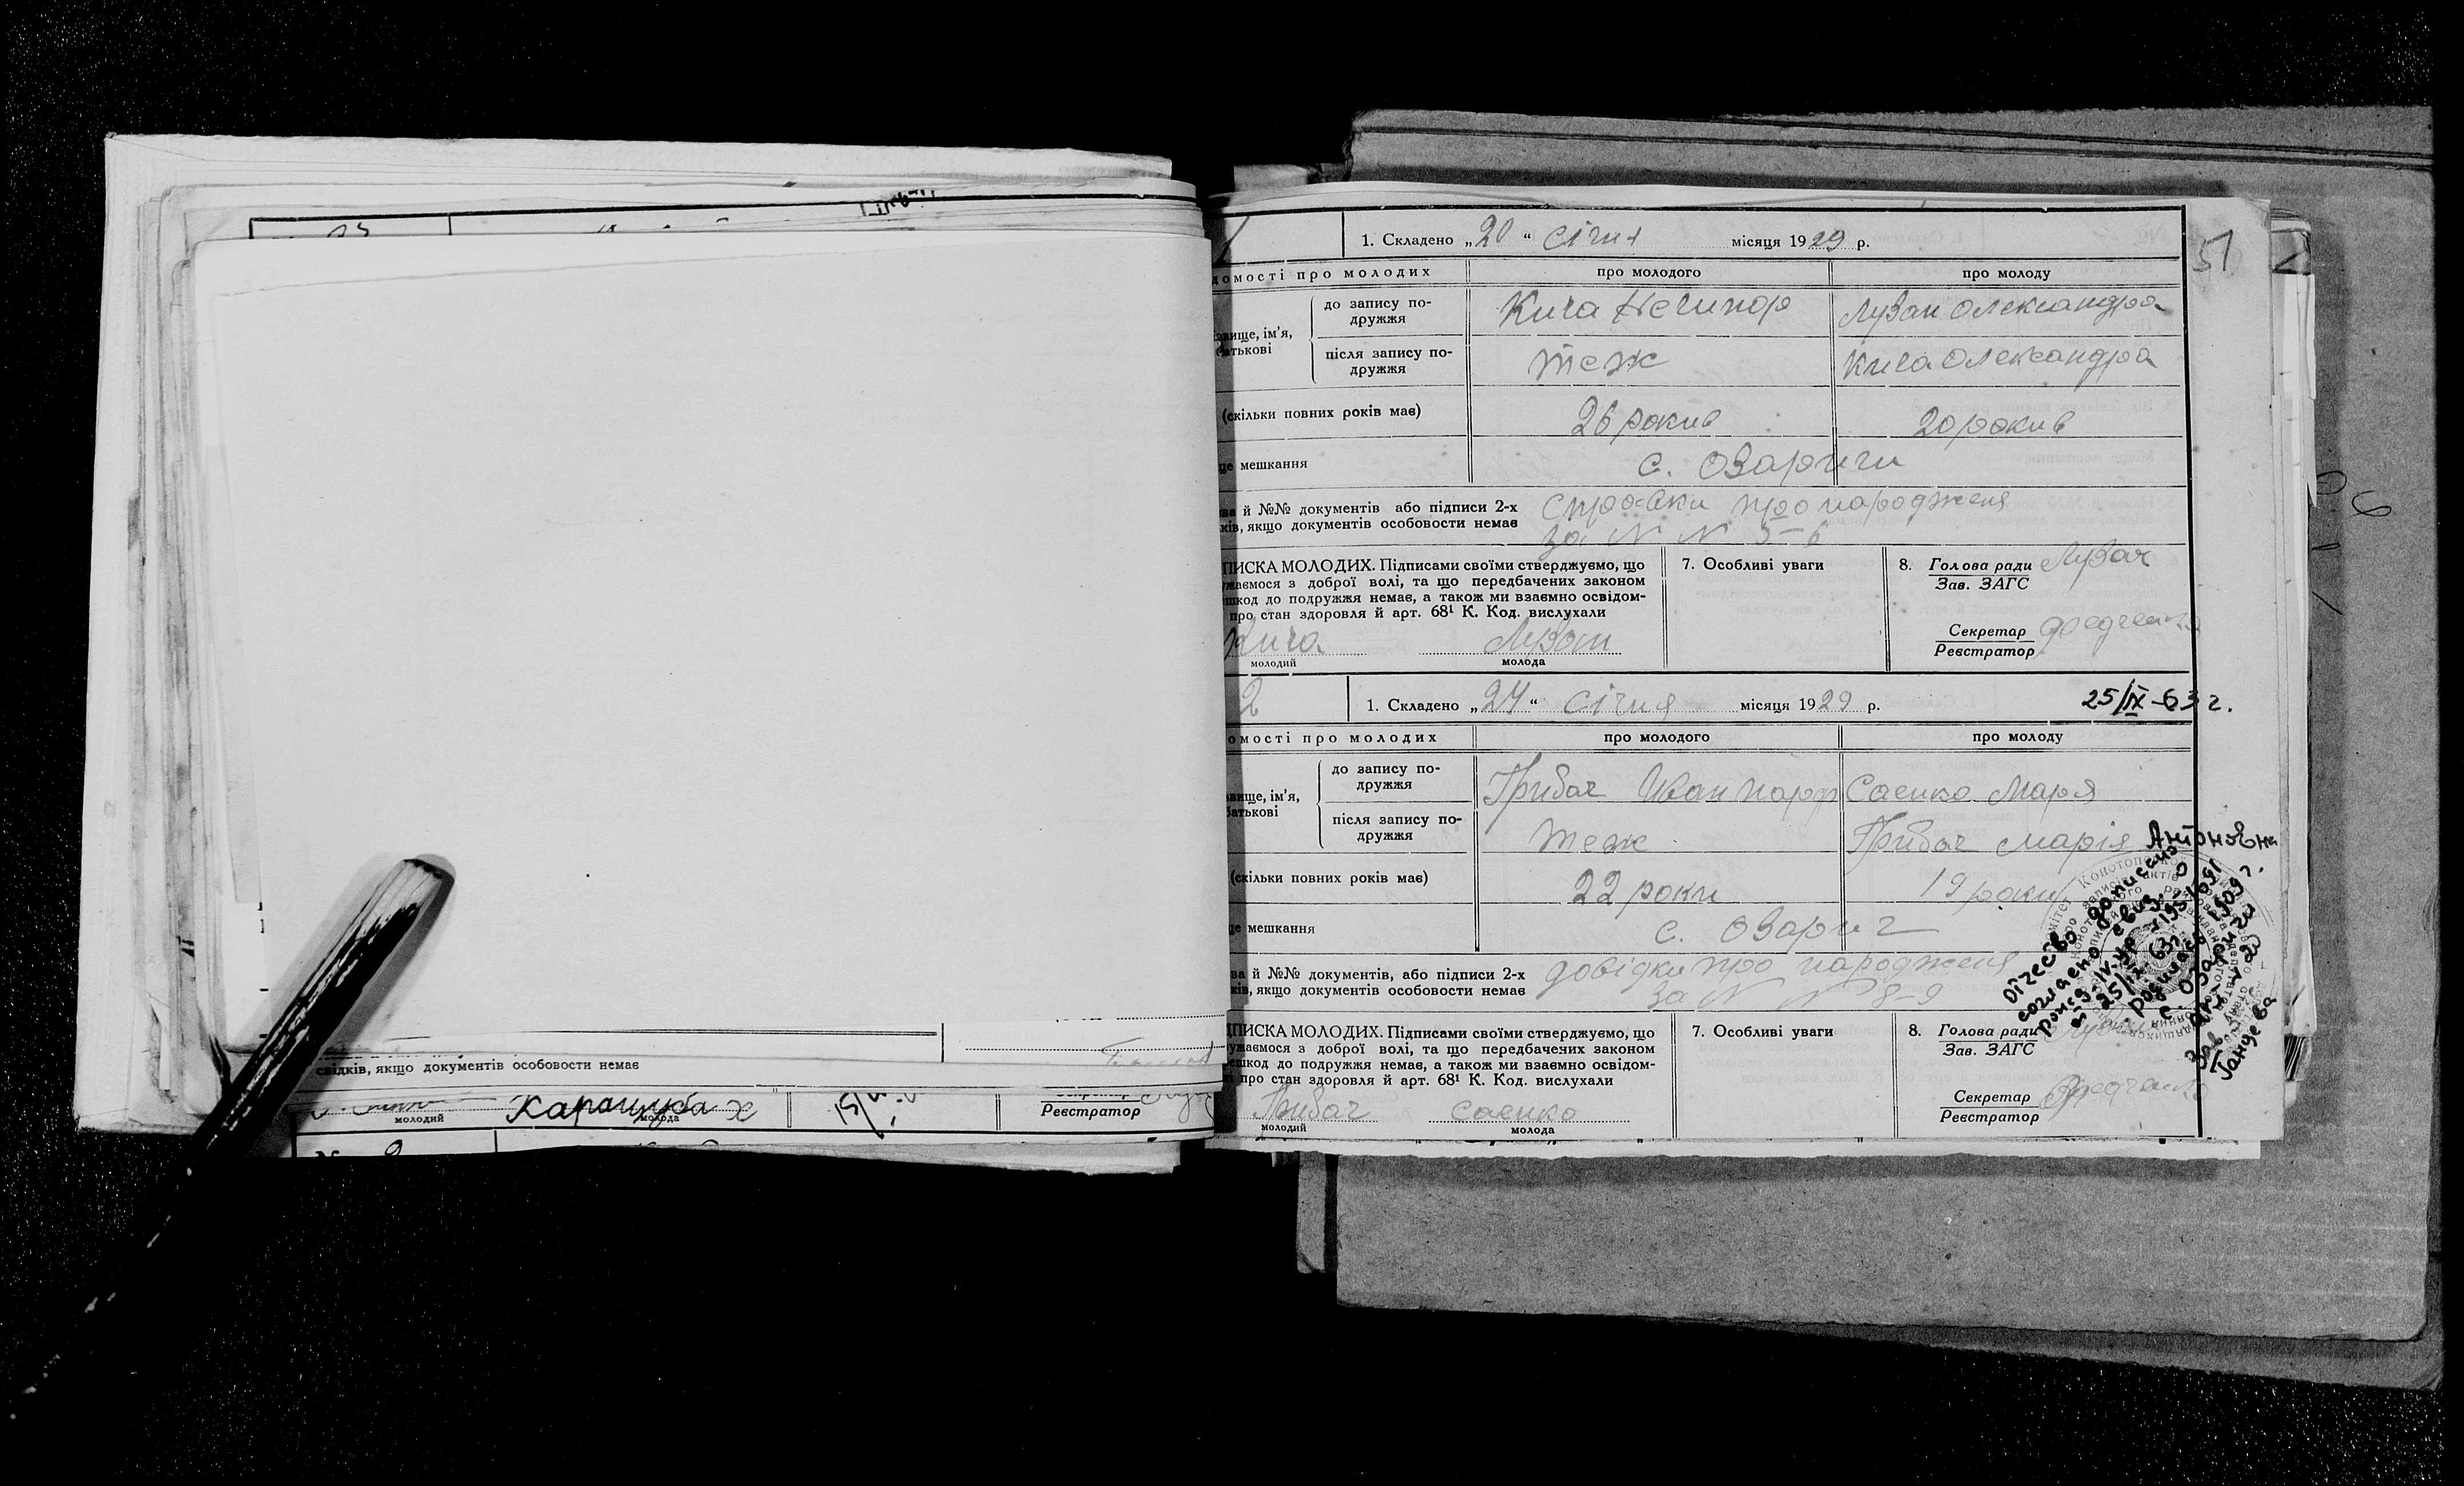 свідків, якщо документів особовости немає
Каращуба х
молодий
молода
Реєстратор
51
1. Складено „20“ січня місяця 1929 р.
домості про молодих
про молодого
про молоду
звище, ім’я,
батькові
до запису по-
дружжя
Кича Нечипор
Лузан Олександра
після запису по-
дружжя
теж
Кича Олександра
(скільки повних років має)
26 рокив
20 рокив
це мешкання
с. Озаричи
ва й №№ документів або підписи 2-х
ків, якщо документів особовости немає
справки про народженя
за N N 5-6
ПИСКА МОЛОДИХ. Підписами своїми стверджуємо, що
ужаємося з доброї волі, та що передбачених законом
шкод до подружжя немає, а також ми взаємно освідом-
про стан здоровля й арт. 68¹ К. Код. вислухали
Кича
молодий
Лузан
молода
7. Особливі уваги
8. Голова ради
Зав. ЗАГС
Секретар
Реєстратор
2
1. Складено „24“ січня місяця 1929 р.
25/IX-63 г.
омості про молодих
про молодого
про молоду
звище, ім’я,
батькові
до запису по-
дружжя
Грибач Иван Парф
Саенко Маря
після запису по-
дружжя
теж
Грибач Марія Антоновна
(скільки повних років має)
22 роки
19 роки
це мешкання
с. Озарич
ва й №№ документів, або підписи 2-х
ків, якщо документів особовости немає
довідки про народженя
за N N 8-9
отчество дописано
согласно
25/IX.63г.
родилась 1909 г.
с. Озаричи
Зав.
Гандева
ДПИСКА МОЛОДИХ. Підписами своїми стверджуємо, що
ужаємося з доброї волі, та що передбачених законом
ешкод до подружжя немає, а також ми взаємно освідом-
про стан здоровля й арт. 68¹ К. Код. вислухали
Грибач
молодий
Саенко
молода
7. Особливі уваги
8. Голова ради
Зав. ЗАГС
Секретар
Реєстратор